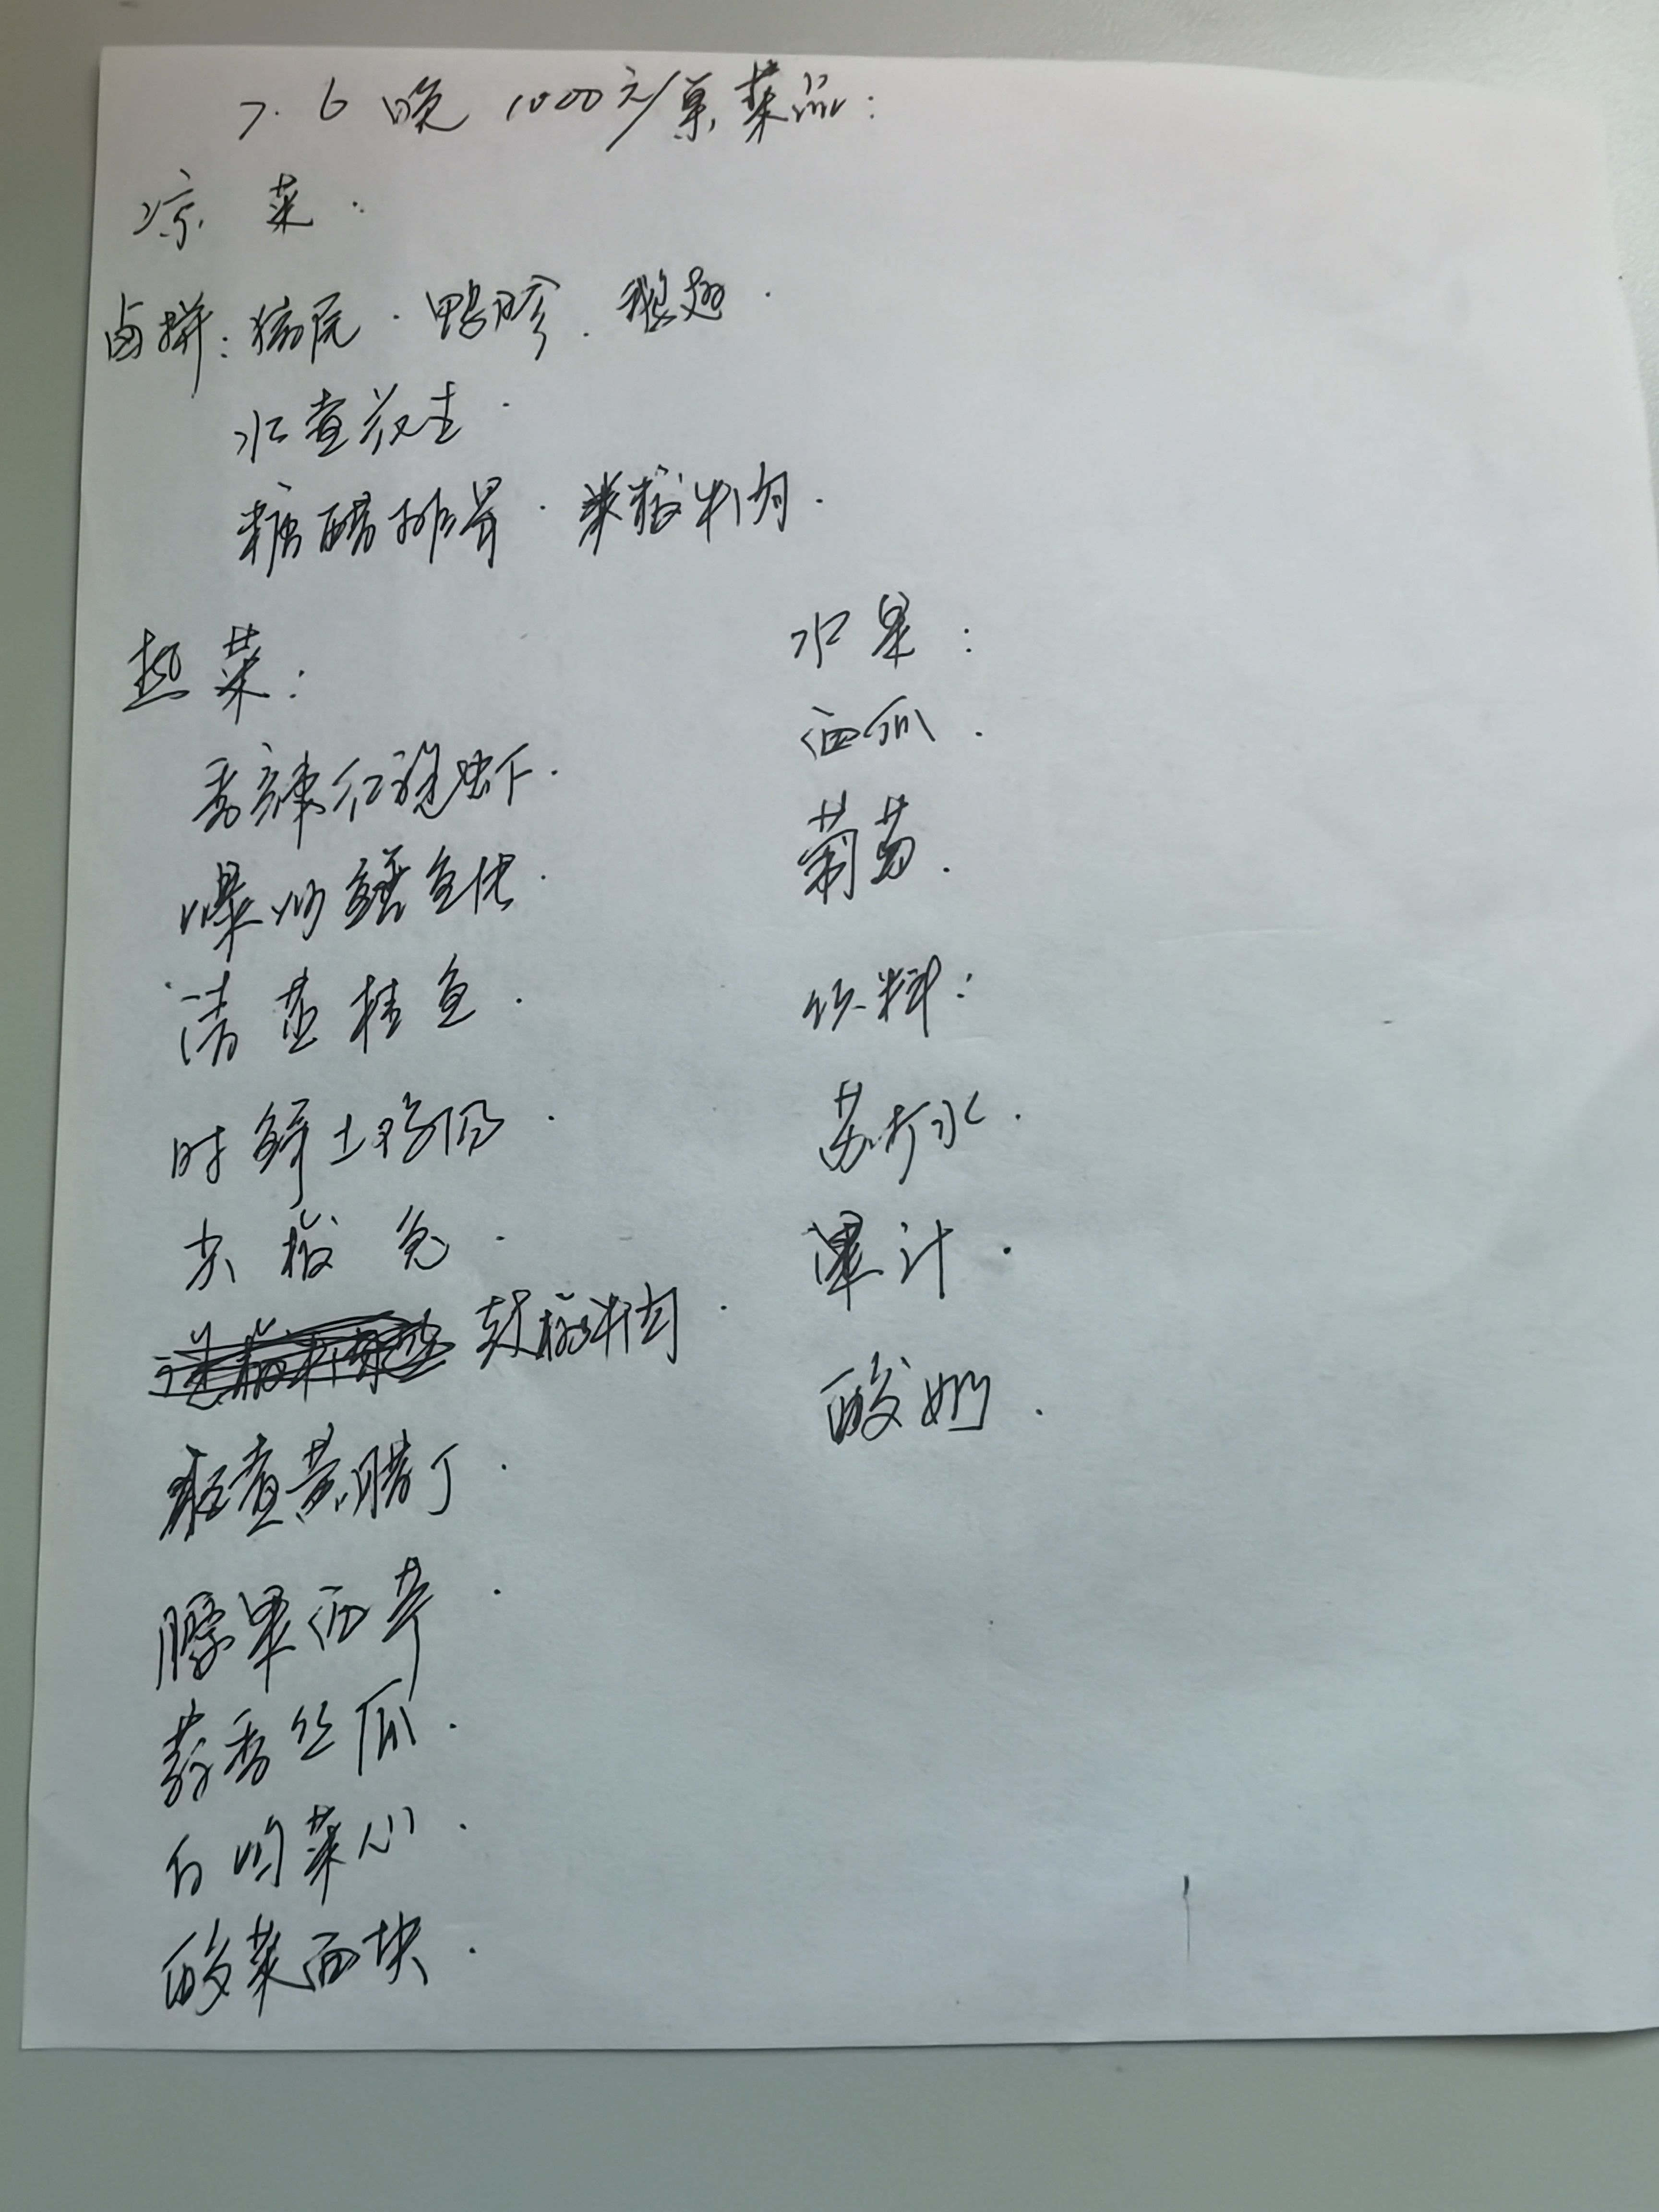 7.6晚 1000元/桌菜品:
凉菜.
卤拼: 鸭胗. 翅.
水煮花生.
糖醋排骨. 牛肉.
热菜:
香辣红 虾.
爆炒鳝鱼
清蒸桂鱼.
时鲜土鸡
水 兔.
椒牛肉.
煮黄腊丁.
腰果西芹.
蒜香丝瓜.
白灼菜心.
酸菜面块.
水果:
西瓜.
葡萄.
饮料:
苏打水.
果汁.
酸奶.